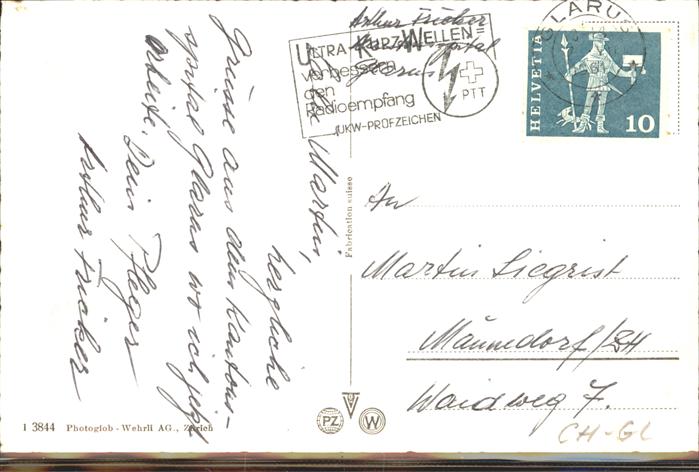 Arthur Fricker
Kantonsspital
Glarus
ULTRA-KURZ-WELLEN
verbessern
den
Radioempfang
UKW-PRÜFZEICHEN
PTT
GLARUS
HELVETIA
10
Martin,
herzliche
Grüsse aus dem Kantons-
spital Glarus wo ich jetzt
arbeite. Dein Pfleger
Arthur Fricker
Fabrication suisse
An
Martin Siegrist
Männedorf/ZH
Waidweg 7.
CH-GL
PZ
W
1 3844 Photoglob-Wehrli AG., Zürich